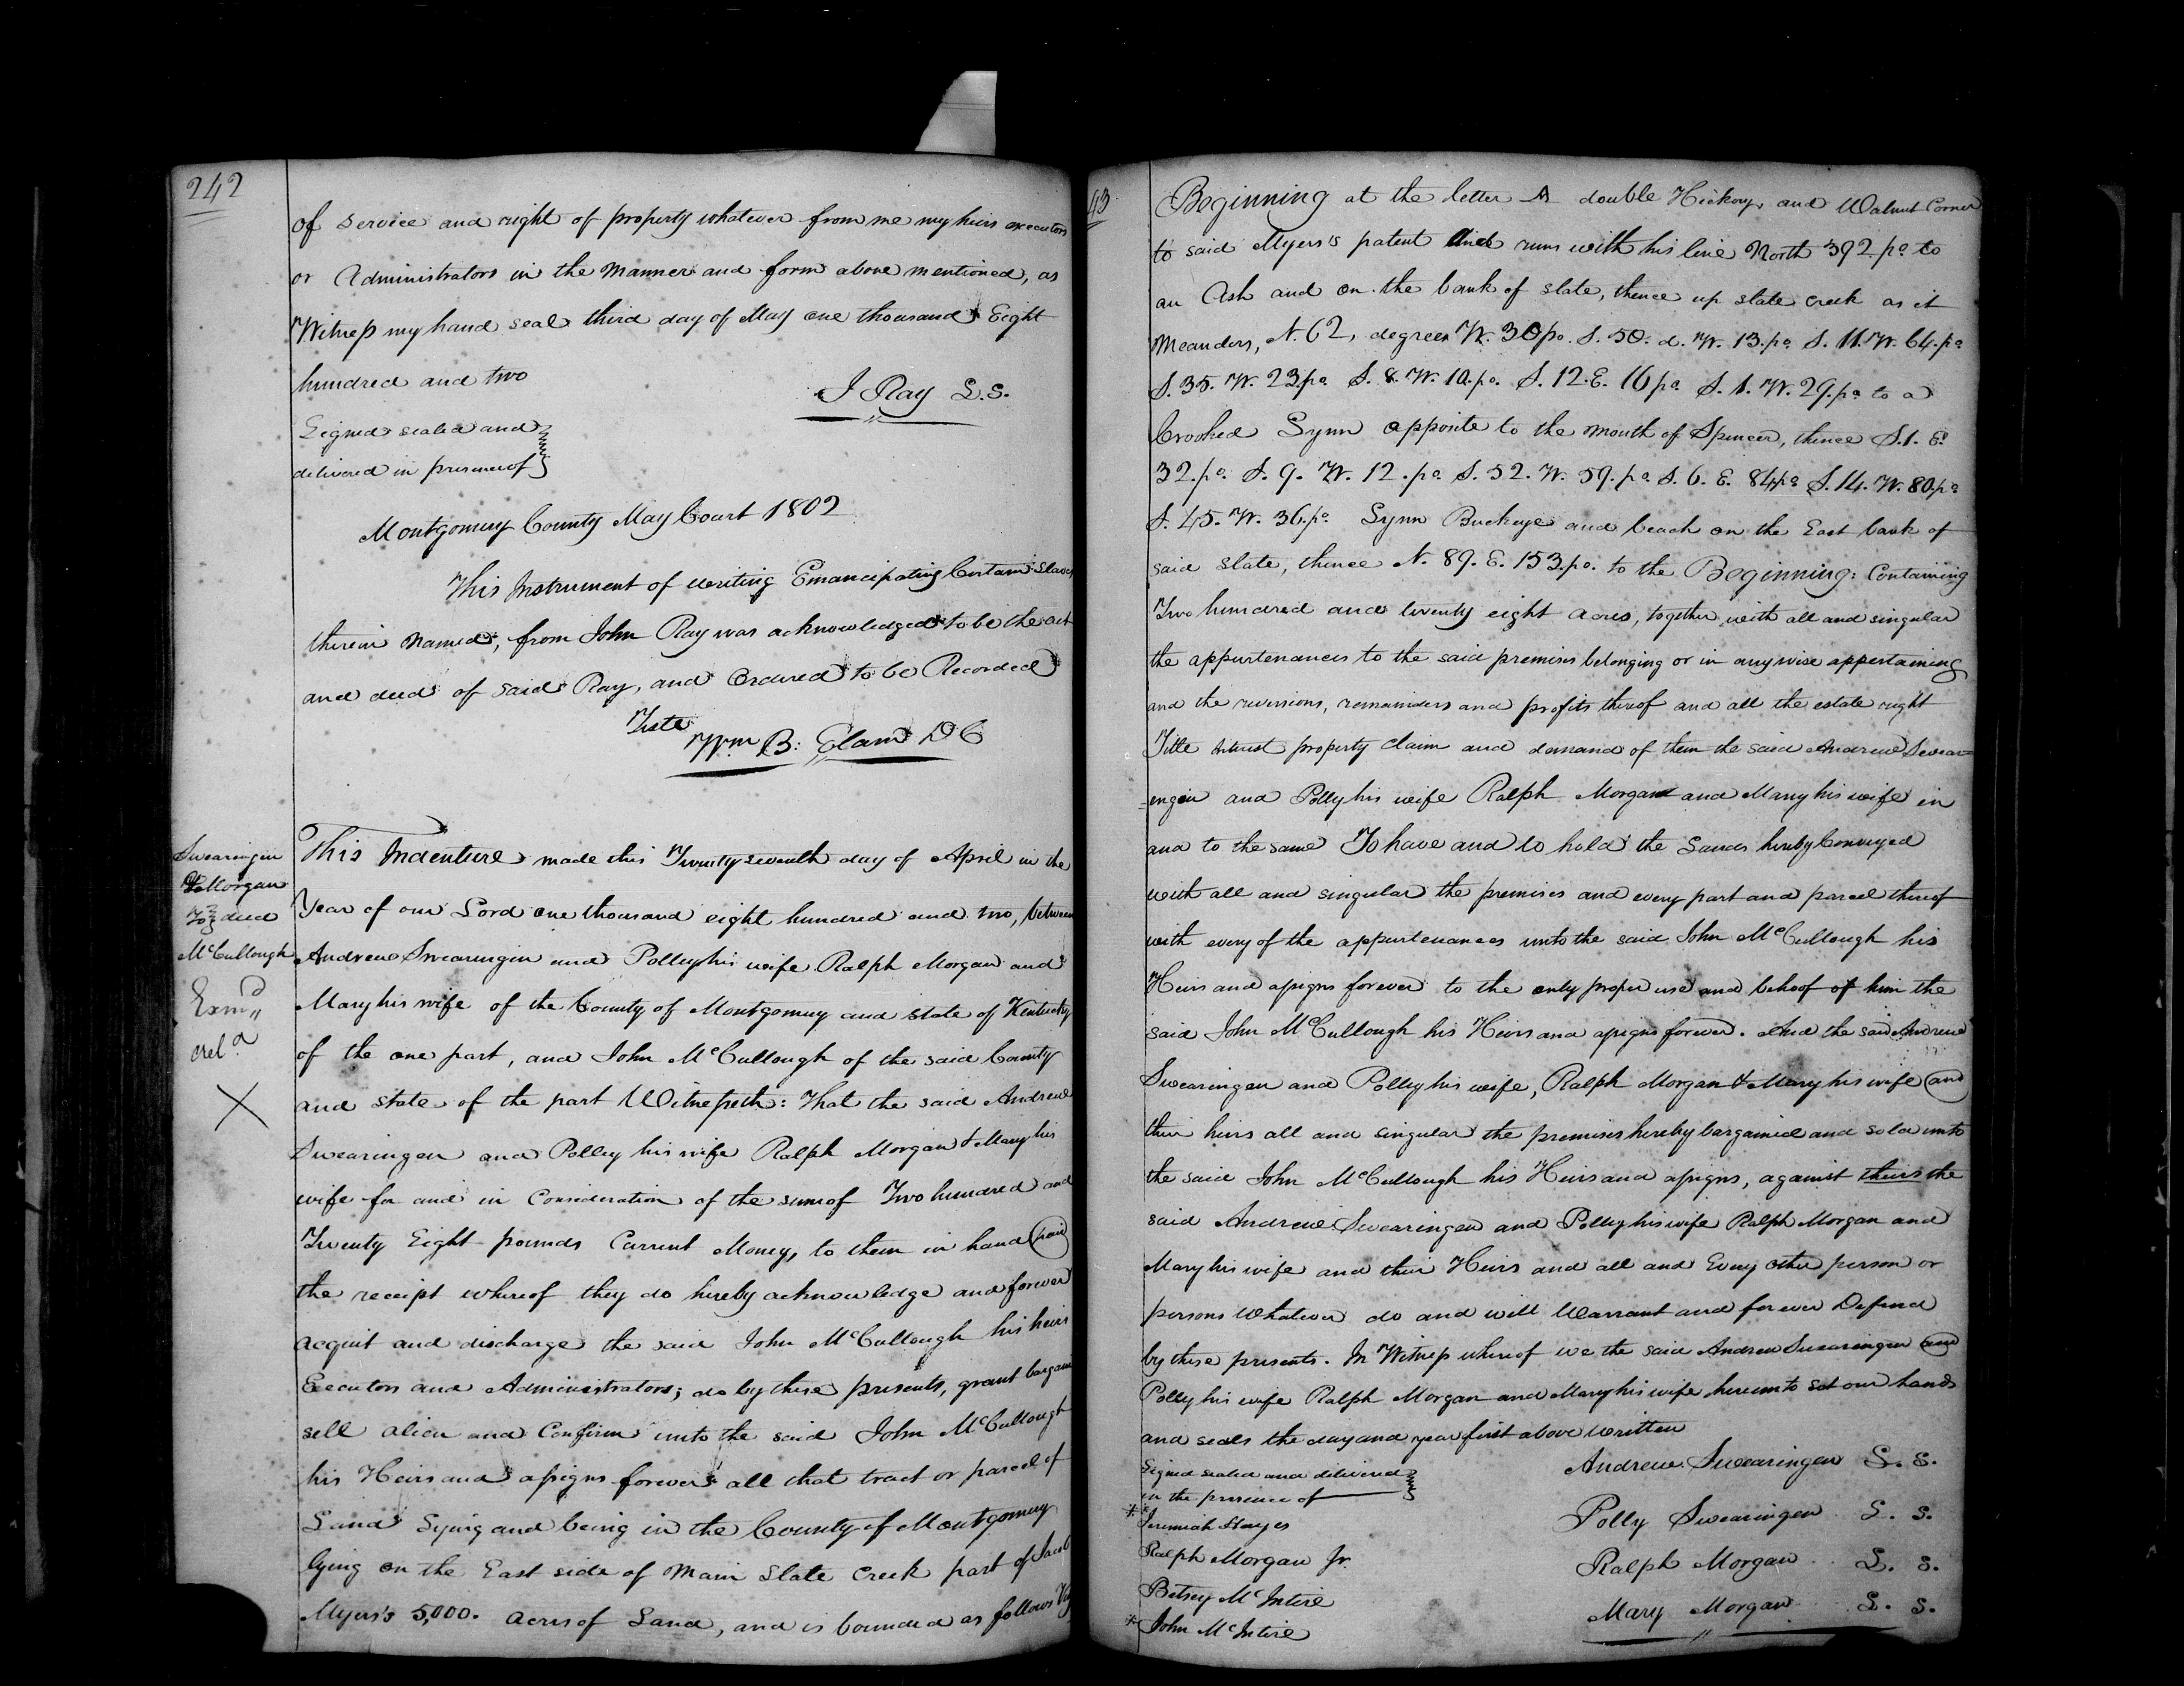 242
of service and right of property whatever from me my heirs executors
or Administrators in the manner and form above mentioned, as
Witness my hand seal third day of May one thousand Eight
hundred and two
J Ray L.S.
Signed sealed and
delivered in presence of
Montgomery County May Court 1802
This Instrument of writing Emancipating Certain Slaves
therein named, from John Ray was acknowledged to be the act
and deed of said Ray, and Ordered to be Recorded
Teste
Wm B: Elam D C
Swearingen
& Morgan
To } deed
McCullough
Exmd
This Indenture made this Twenty seventh day of April in the
Year of our Lord one thousand eight hundred and two, between
Andrew Swearingen and Polley his wife Ralph Morgan and
Mary his wife of the County of Montgomery and state of Kentucky
of the one part, and John McCullough of the said County
and state of the part Witnesseth: That the said Andrew
Swearingen and Polley his wife Ralph Morgan & Mary his
wife for and in Consideration of the sum of Two hundred and
Twenty Eight pounds Current Money, to them in hand paid
the receipt whereof they do hereby acknowledge and forever
acquit and discharge the said John McCullough his heirs
Executors and Administrators; do by these presents, grant bargain
sell alien and Confirm unto the said John McCullough
his Heirs and assigns forever all that tract or parcel of
Land Lying and being in the County of Montgomery
lying on the East side of Main Slate Creek part of Jacob
Myers's 5,000. acres of Land, and is bounded as follows Viz
43
Beginning at the letter A double Hickory and Walnut Corner
to said Myers's patent and runs with his line North 392 po to
an Ash and on the bank of slate, thence up slate creek as it
Meanders, N. 62, degrees W. 30 po. S. 50. d. W. 13. po S. 11. W. 64. po
S. 35. W. 23 po S. 8. W. 10. po. S. 12. E. 16 po S. 1. W. 29. po to a
Crooked Lynn opposite to the mouth of Spencer, thence S. 1. E.
32. po. S. 9. W. 12. po S. 52. W. 59. po S. 6. E. 84 po S. 14. W. 80 po
S. 45. W. 36. po. Lynn Buckeye and beach on the East bank of
said slate, thence N. 89. E. 153. po. to the Beginning: Containing
Two hundred and twenty eight acres, together with all and singular
the appurtenances to the said premises belonging or in any wise appertaining
and the reversions, remainders and profits thereof and all the estate right
Title interest property claim and demand of them the said Andrew Swear=
=engen and Polly his wife Ralph Morgan and Mary his wife in
and to the same To have and to hold the Lands hereby Conveyed
with all and singular the premises and every part and parcel thereof
with every of the appurtenances unto the said John McCullough his
Heirs and assigns forever to the only proper use and behoof of him the
said John McCullough his Heirs and assigns forever. And the said Andrew
Swearingen and Polley his wife, Ralph Morgan & Mary his wife and
their heirs all and singular the premises hereby bargained and sold unto
the said John McCullough his Heirs and assigns, against theirs the
said Andrew Swearingen and Polley his wife Ralph Morgan and
Mary his wife and their Heirs and all and Every other person or
persons Whatever do and will Warrant and forever Defend
by these presents. In Witness whereof we the said Andrew Swearingen and
Polley his wife Ralph Morgan and Mary his wife hereunto set our hands
and seals the day and year first above written
Signed sealed and delivered
in the presence of
Andrew Swearingen L. S.
Jeremiah Hayes
Polly Swearingen L. S.
Ralph Morgan Jr.
Ralph Morgan L. S.
Betsey McIntire
Mary Morgan L. S.
John McIntire